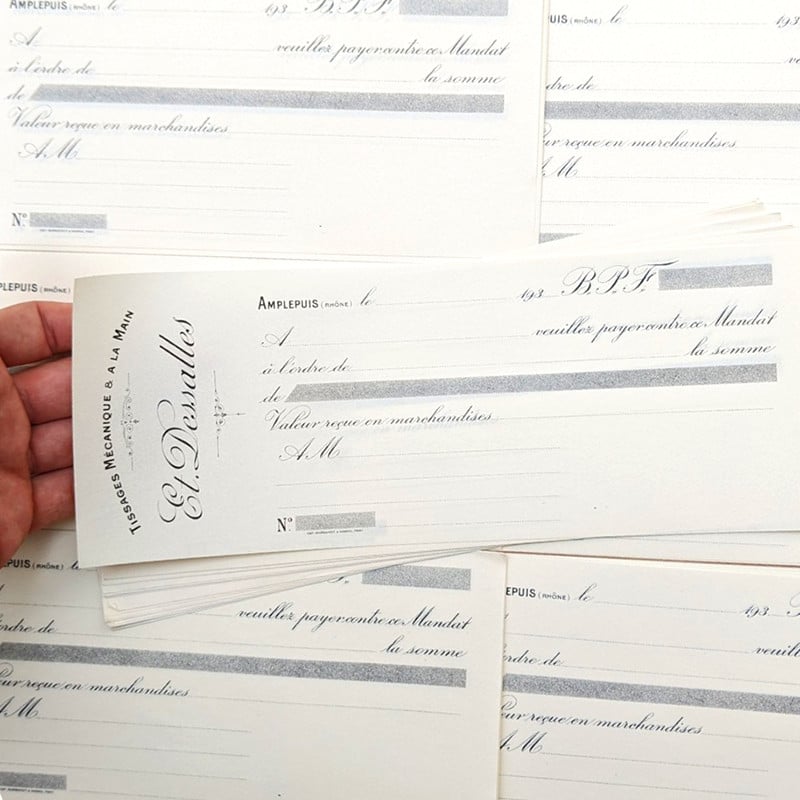 AMPLEPUIS (RHÔNE) le 193 B.P.F.
A veuillez payer contre ce Mandat
à l'ordre de la somme
de
Valeur reçue en marchandises
A M
N°
UIS (RHÔNE) le 193
rdre de
ur reçue en marchandises
M
PLEPUIS (RHÔNE)
TISSAGES MÉCANIQUE & A LA MAIN
Et. Dessalles
AMPLEPUIS (RHÔNE) le 193 B.P.F.
A veuillez payer contre ce Mandat
à l'ordre de la somme
de
Valeur reçue en marchandises
A M
N°
PUIS (RHÔNE)
veuillez payer contre ce Mandat
ordre de la somme
eur reçue en marchandises
A M
EPUIS (RHÔNE) le 193
veuill
ordre de
eur reçue en marchandises
A M